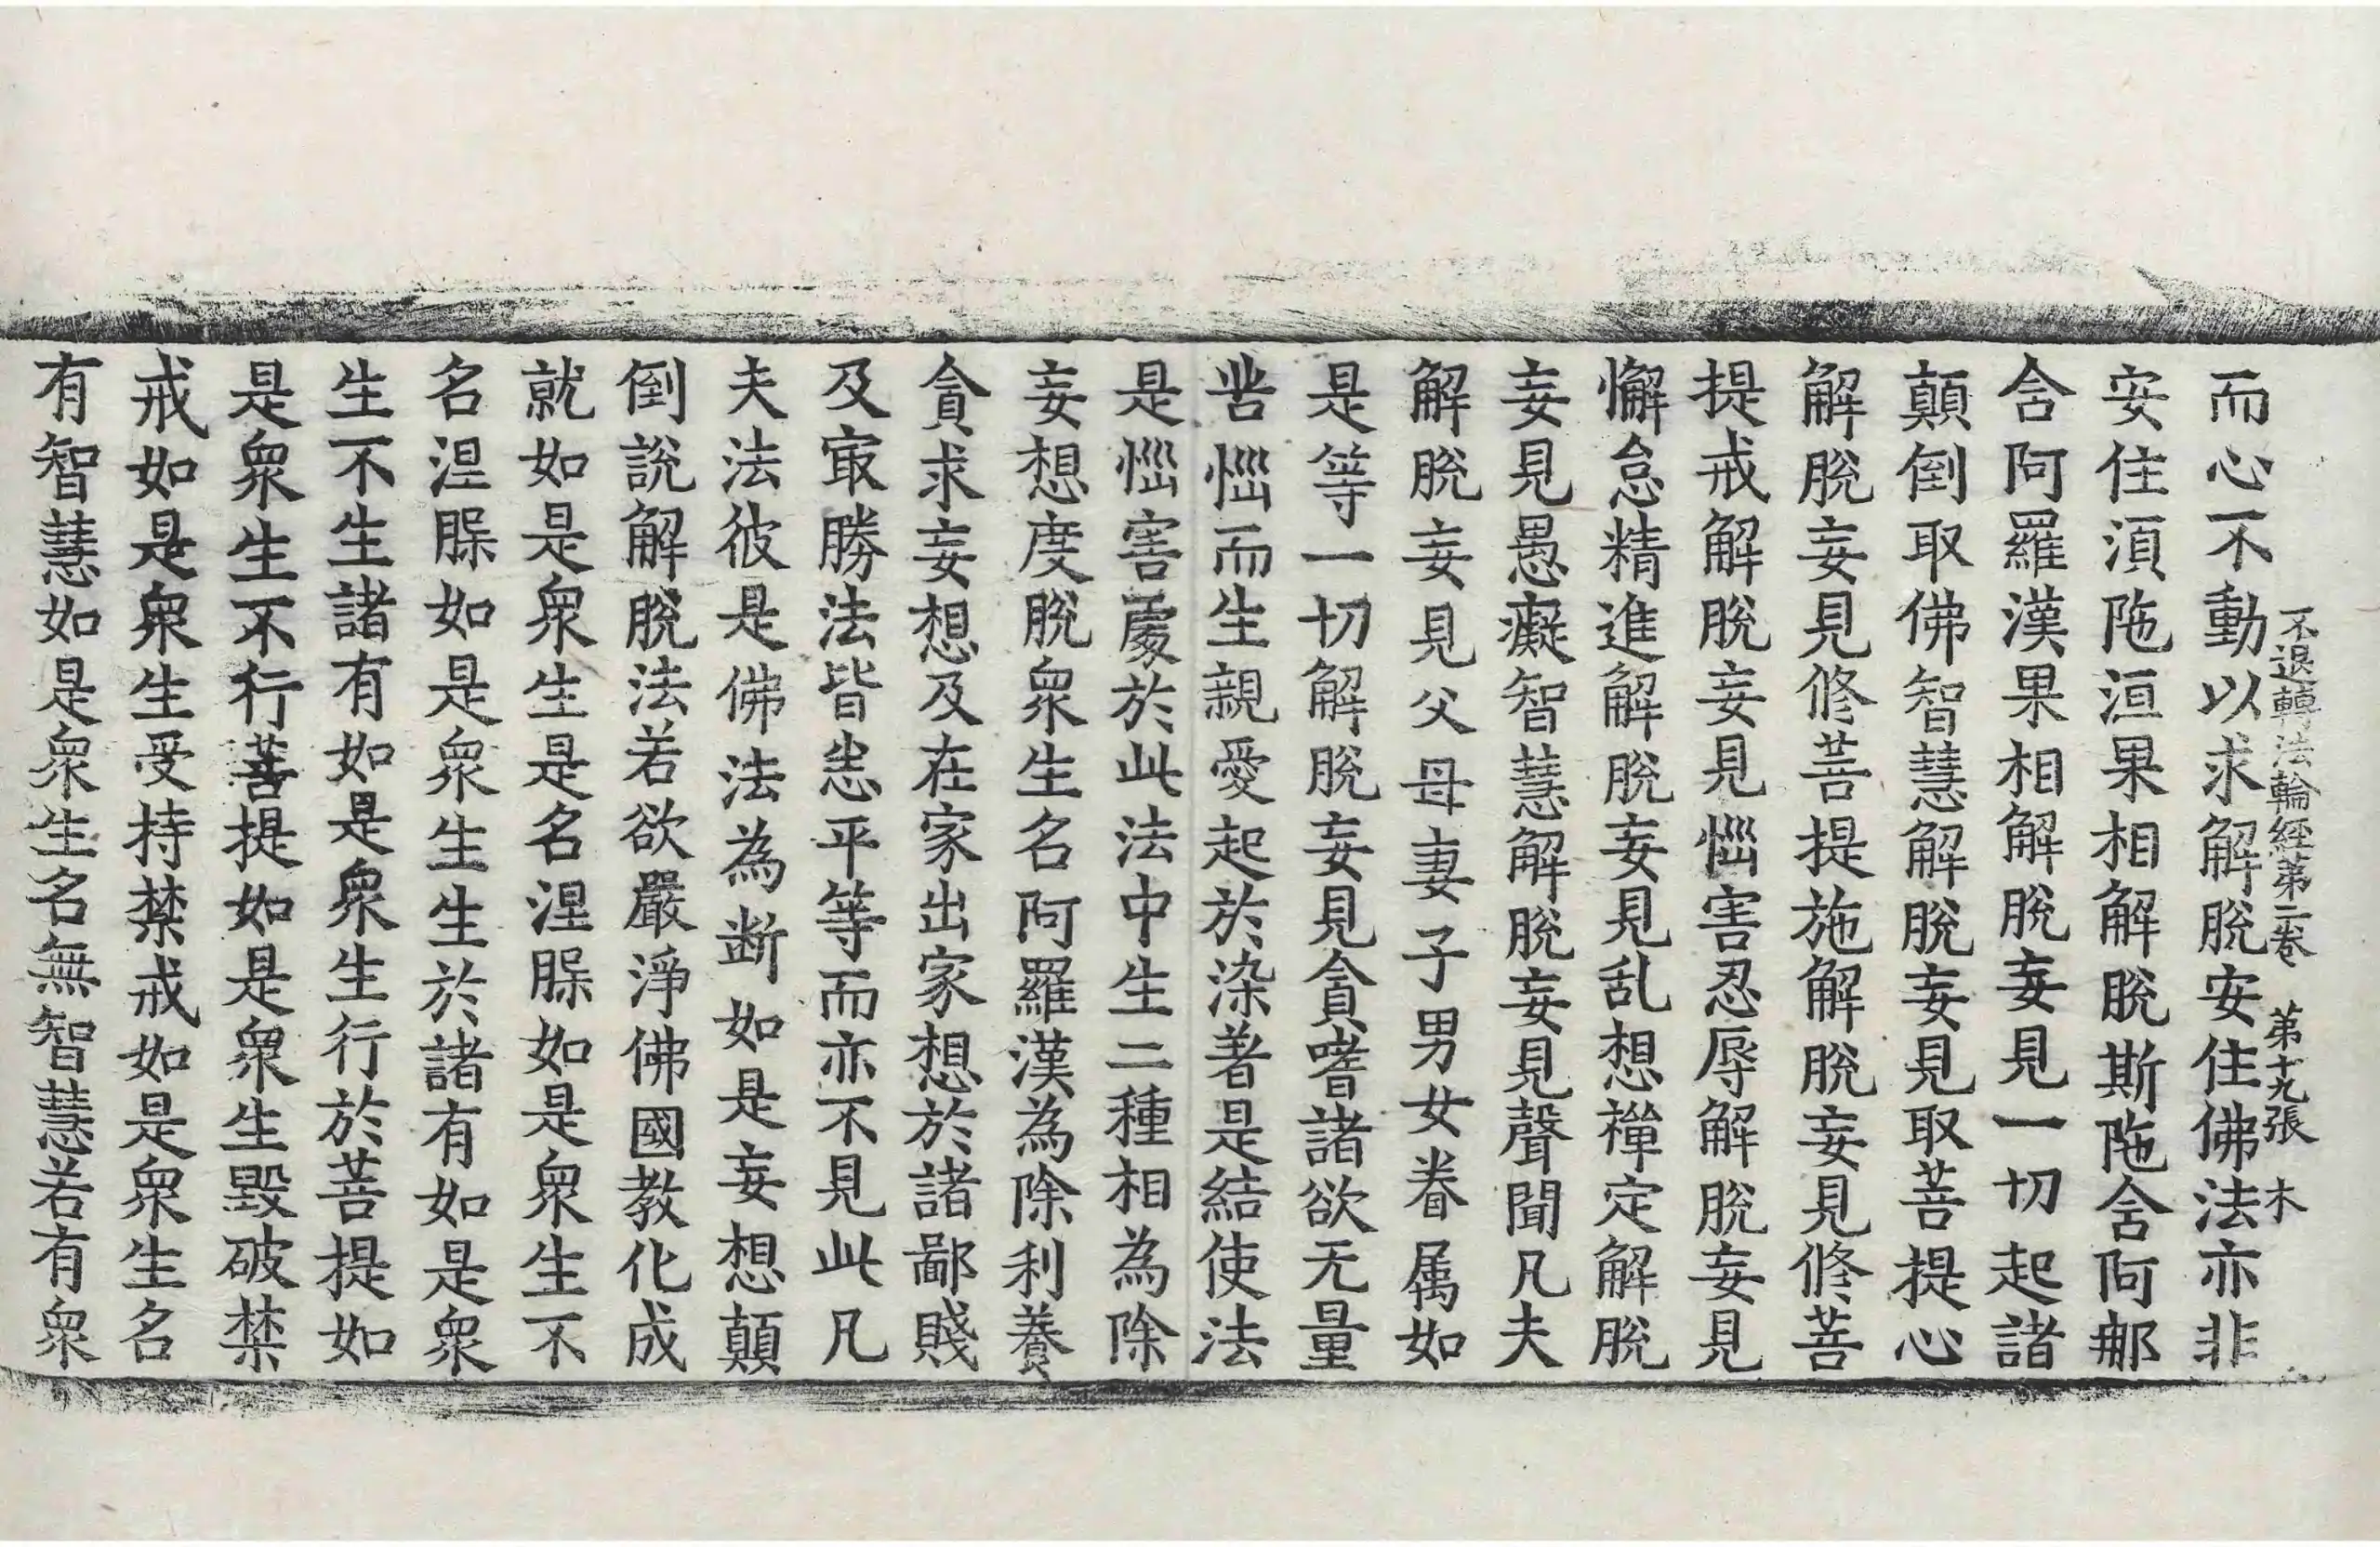 不退轉法輪經第二卷　第十九張　木
而心不動以求解脫安住佛法亦非
安住湏陁洹果相解脫斯陁含阿那
含阿羅漢果相解脫妄見一切起諸
顛倒取佛智慧解脫妄見取菩提心
解脫妄見修菩提施解脫妄見修菩
提戒解脫妄見惱害忍辱解脫妄見
懈怠精進解脫妄見乱想禪定解脫
妄見愚癡智慧解脫妄見聲聞凡夫
解脫妄見父母妻子男女眷属如
是等一切解脫妄見貪嗜諸欲无量
苦惱而生親愛起於染著是結使法
是惱害處於此法中生二種相為除
妄想度脫衆生名阿羅漢為除利養
貪求妄想及在家出家想於諸鄙賤
及㝡勝法皆悉平等而亦不見此凡
夫法彼是佛法為断如是妄想顛
倒說解脫法若欲嚴淨佛國教化成
就如是衆生是名涅槃如是衆生不
名涅槃如是衆生生於諸有如是衆
生不生諸有如是衆生行於菩提如
是衆生不行菩提如是衆生毀破禁
戒如是衆生受持禁戒如是衆生名
有智慧如是衆生名無智慧若有衆